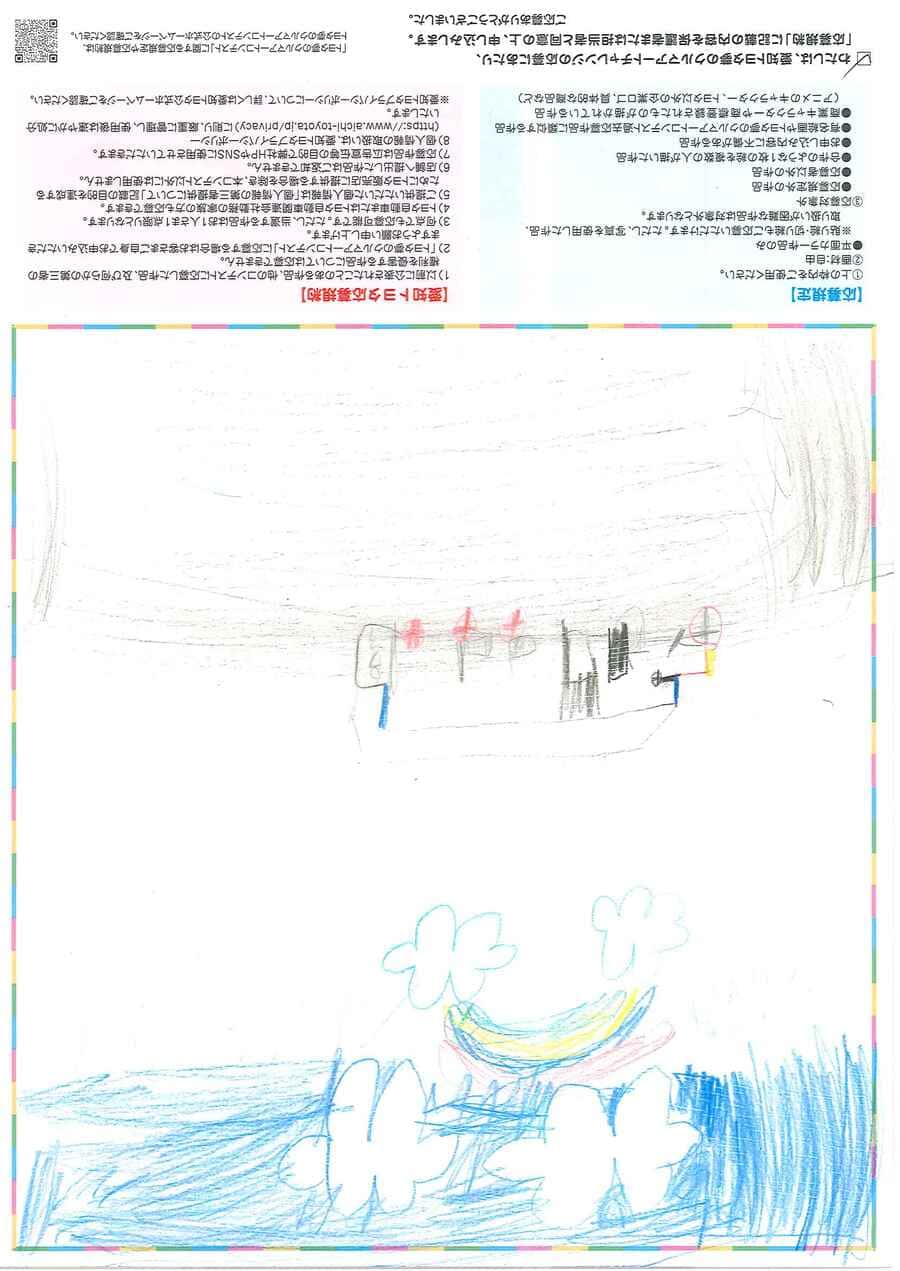 【応募規定】
① 上の枠内をご使用ください。
② 画材:自由
●平面カラー作品のみ
※貼り絵・切り絵も応募いただけます。ただし、写真を使用した作品、
取扱いが困難な作品は対象外となります。
③応募対象外
●応募規定外の作品
●応募者以外の作品
●合作のような1枚の絵を複数の人が描いた作品
●お申し込み内容に不備がある作品
●有名絵画やトヨタ夢のクルマアートコンテスト過去応募作品に類似する作品
●商業キャラクターや商標登録されたものが描かれている作品
(アニメのキャラクター、トヨタ以外の企業ロゴ、具体的な商品など)
【愛知トヨタ応募規約】
1)以前に公表されたことのある作品、他のコンテストに応募した作品、及び何らかの第三者の
権利を侵害する作品については応募できません。
2)「トヨタ夢のクルマアートコンテスト」に応募する場合はお客さまご自身でお申込いただき
ますようお願い申し上げます。
3)何点でも応募可能です。ただし、当選する作品はお1人さま1点限りとなります。
4)トヨタ自動車またはトヨタ自動車関連会社勤務の家族の方も応募できます。
5)ご提供いただいた個人情報は「個人情報の第三者提供について」記載の目的を達成する
ためにトヨタ販売店に提供する場合を除き、本コンテスト以外には使用しません。
6)店舗へ提出した作品はご返却できません。
7)応募作品は広告宣伝等の目的で弊社HPやSNSに使用させていただきます。
8)個人情報の取扱いは、愛知トヨタプライバシーポリシー
(https://www.aichi-toyota.jp/privacy)に則り、厳重に管理し、使用後は速やかに処分
いたします。
※愛知トヨタプライバシーポリシーについて、詳しくは愛知トヨタ公式ホームページをご確認ください。
わたしは、愛知トヨタ夢のクルマアートチャレンジの応募にあたり、
「応募規約」に記載の内容を保護者または担当者と同意の上、申し込みします。
ご応募ありがとうございました。
「トヨタ夢のクルマアートコンテスト」に関する応募規定や応募規約は、
トヨタ夢のクルマアートコンテストの公式ホームページをご確認ください。